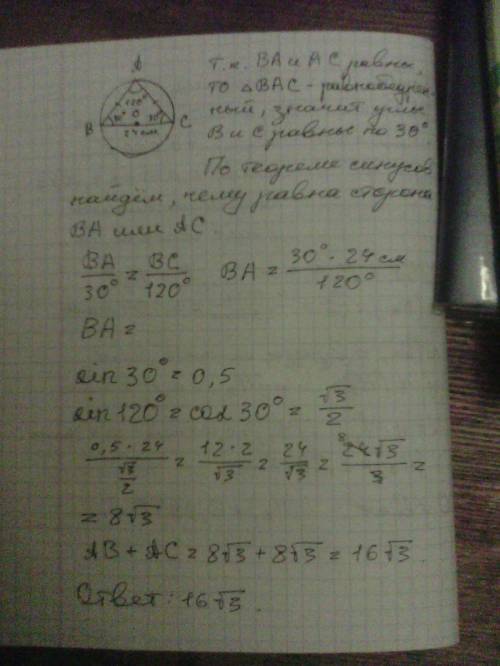 A
120°
30° O 30°
B 24 см C
т.к. BA и AC равны,
то △BAC - равнобедрен-
ный, значит углы
B и C равны по 30°
По теореме синусов
найдём, чему равна сторона
BA или AC.
BA/30° = BC/120° BA = 30° · 24 см/120°
BA =
sin 30° = 0,5
sin 120° = cos 30° = √3/2
0,5 · 24/(√3/2) = 12 · 2/√3 = 24/√3 = 8 24√3/3 =
= 8√3
AB + AC = 8√3 + 8√3 = 16√3.
Ответ: 16√3.